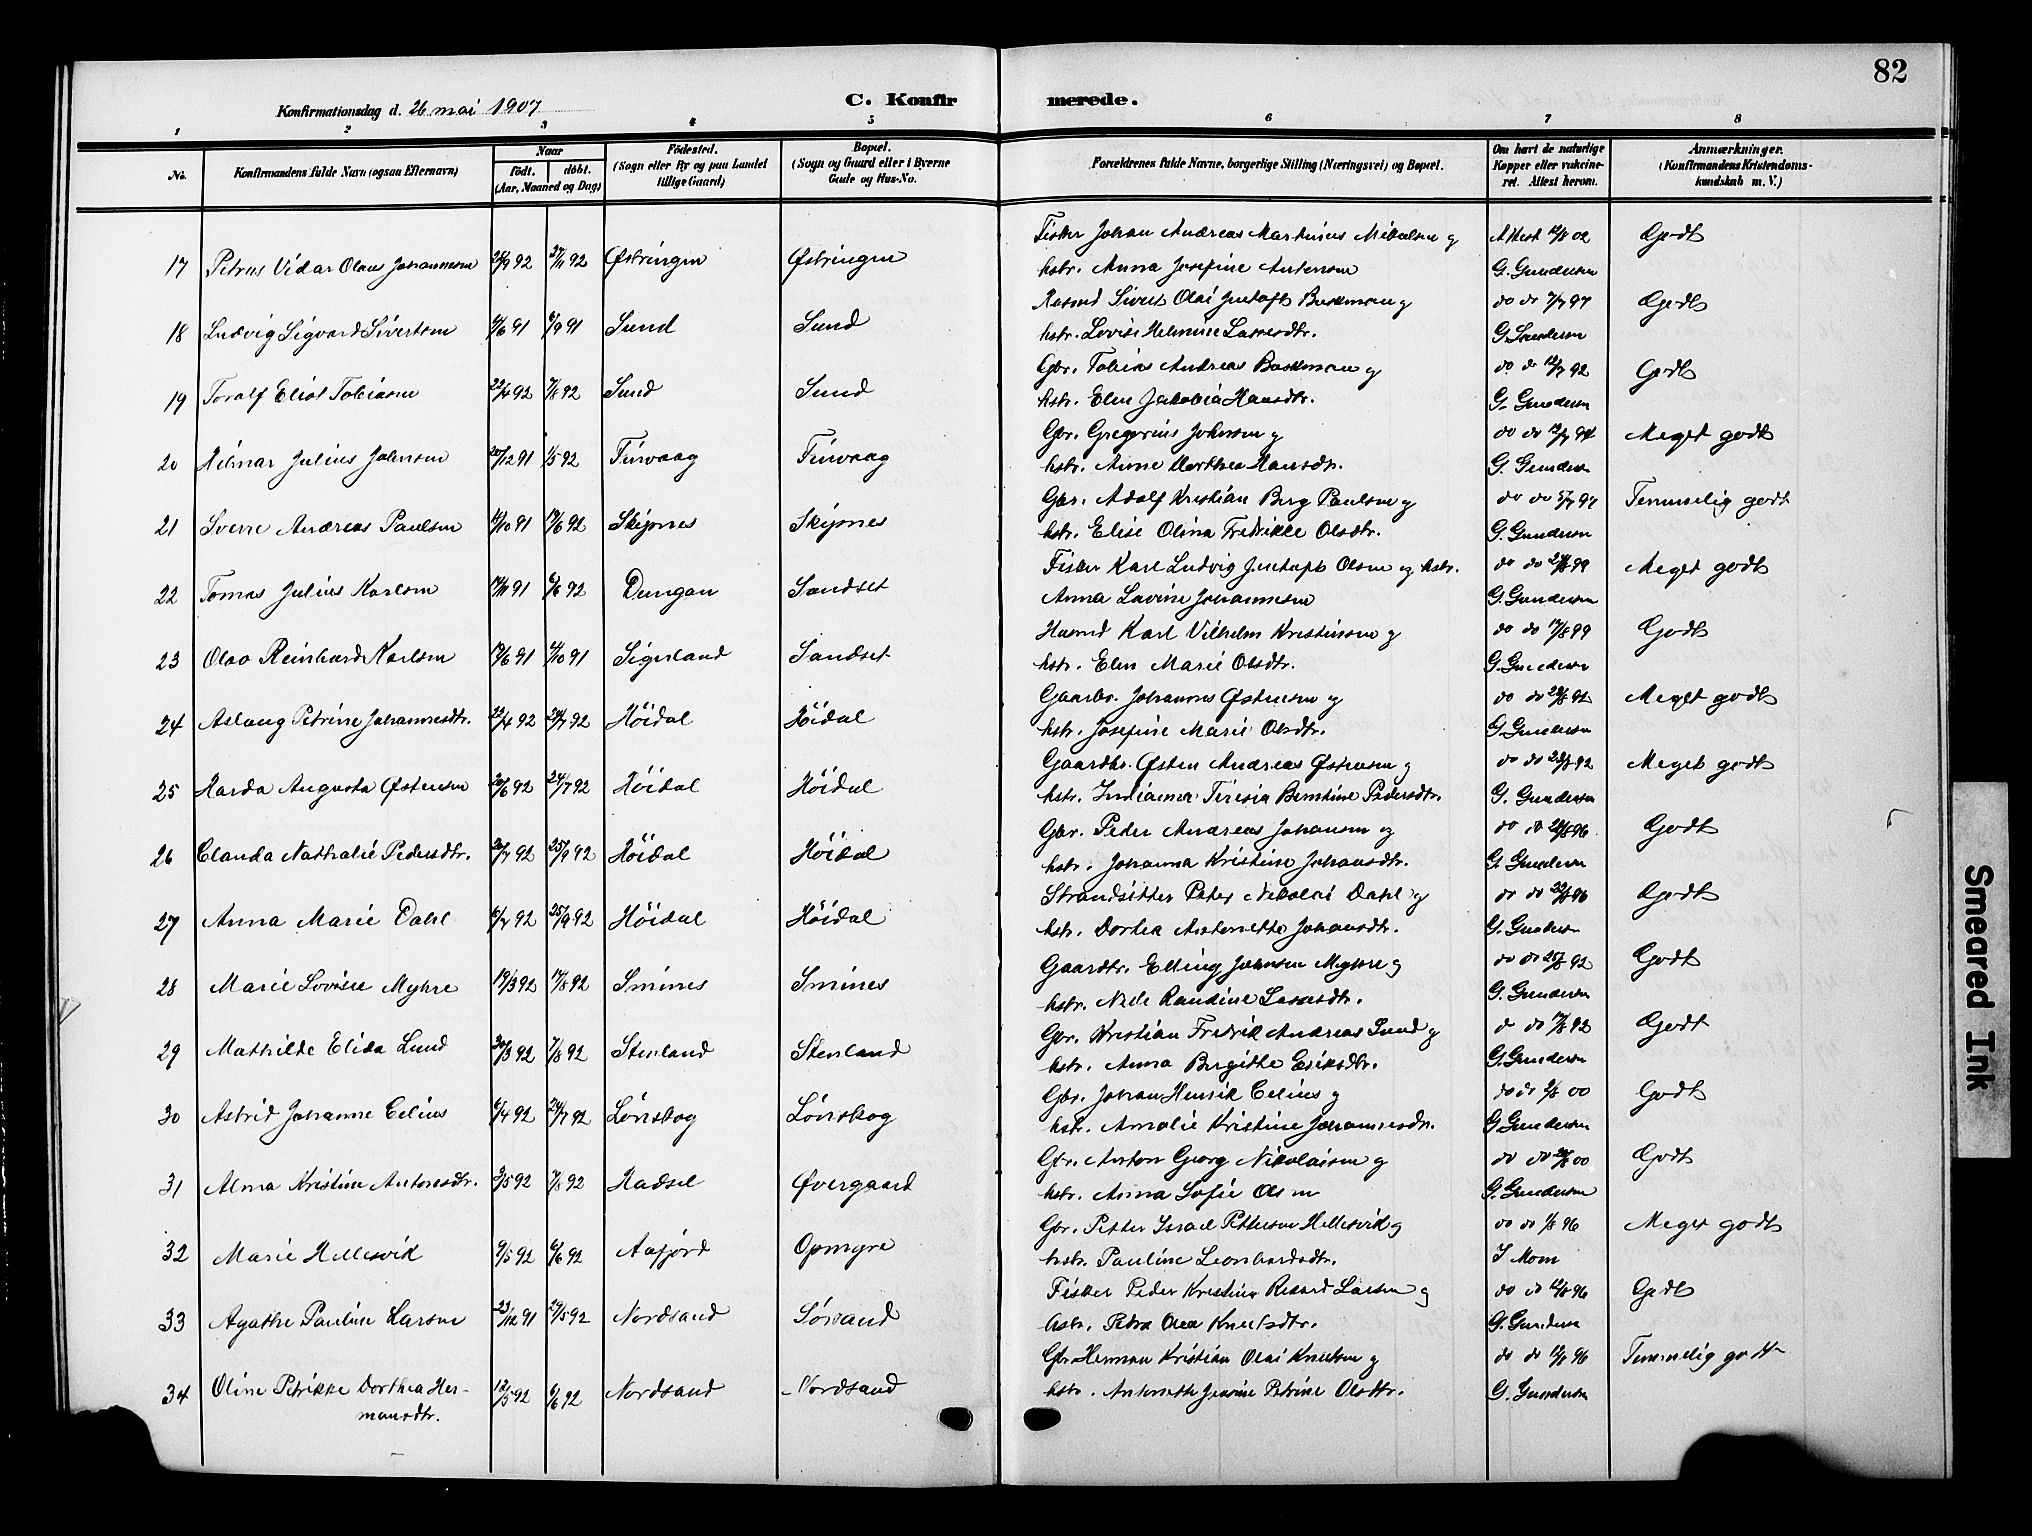 82
Konfirmationsdag d. 26 mai 1907
C. Konfirmerede.
1 2 3 4 5 6 7 8
No. Konfirmandens fulde Navn (ogsaa Efternavn) Naar født. døbt. (Aar, Maaned og Dag) Fødested. (Sogn eller By og paa Landet tillige Gaard) Bopæl. (Sogn og Gaard eller i Byerne Gade og Hus-No. Forældrenes fulde Navne, borgerlige Stilling (Næringsvei) og Bopæl. Om havt de naturlige Kopper eller vaccineret. Attest herom. Anmærkninger. (Konfirmandens Kristendomskundskab m. V.)
Fisker Johan Andreas Martinius Mikalsen og Attest 12/8 02 Godt
17 Petrus Vidar Olaus Johannesen 92 27/11 92 Østringen Østringen hstr. Anna Josefine Antonsen G. Gundersen
Sivert Olai Gustaft Buskman og do do 7/7 97 Godt
18 Ludvig Sigvard Sivertsen 4/6 91 6/9 91 Sund Sund hstr. Lovise Helmine Lassesdtr. G. Gundersen
Gbr. Tobias Andreas Buskman og do do 12/7 92 Godt
19 Toralf Eliot Tobiasen 22/4 92 7/8 92 Sund Sund hstr. Elen Jakobia Hansdtr. G. Gundersen
Gbr. Gregorius Johnsen og do do 12/7 94 Meget godt
20 Hilmar Julius Johnsen 20/12 91 1/5 92 Tinvaag Tinvaag hstr. Anne Dorthea Hansdtr. G. Gundersen
Gbr. Adolf Kristian Berg Paulsen og do do 5/7 97 Temmelig godt
21 Sverre Andreas Paulsen 12/10 91 19/6 92 Skipnes Skipnes hstr. Elise Olina Fredrikke Olsdtr. G. Gundersen
Fisker Karl Ludvig Gustaft Olsen og hstr. do do 99 Meget godt
22 Tomas Julius Karlsen 17/11 91 6/6 92 Dungan Sandset Anna Lovise Johannesen G. Gundersen
Husmd Karl Vilhelm Kristiansen og do do 17/8 99 Godt
23 Olav Reinhard Karlsen 19/6 91 4/10 91 Sigerland Sandset hstr. Elen Marie Olsdtr. G. Gundersen
Gaardbr. Johannes Østensen og do do 92 Meget godt
24 Aslaug Petrine Johannesdtr. 23/4 92 24/7 92 Høidal Høidal hstr. Josefine Marie Olsdtr. G. Gundersen
Gaardbr. Østen Andreas Østensen og do do 92 Meget godt
25 Harda Augusta Østensen 20/6 92 24/7 92 Høidal Høidal hstr. Indianna Tiresia Berntine Pedersdtr. G. Gundersen
Gbr. Peder Andreas Johansen og do do 96 Godt
26 Clauda Nathalie Pedersdtr. 26/7 92 25/9 92 Høidal Høidal hstr. Johanna Kristine Johansdtr. G. Gundersen
Strandsitter Peter Nikolai Dahl og do do 96 Godt
27 Anna Marie Dahl 6/7 92 25/9 92 Høidal Høidal hstr. Dortea Antonette Johansdtr. G. Gundersen
Gaardbr. Elling Johnsen Myhre og do do 92 Godt
28 Marie Lovise Myhre 19/3 92 17/8 92 Smines Smines hstr. Nele Randine Lassesdtr. G. Gundersen
Gbr. Kristian Fredrik Andreas Lund og do do 17/8 92 Godt
29 Mathilde Elida Lund 30/3 92 7/8 92 Stenland Stenland hstr. Anna Birgitte Eriksdtr. G. Gundersen
Gbr. Johan Henrik Celius og do do 00 Godt
30 Astrid Johanne Celius 6/4 92 24/7 92 Lønskog Lønskog hstr. Amalie Kristine Johannesdtr. G. Gundersen
Gbr. Anton Georg Nikolaisen og do do 00 Godt
31 Alma Kristine Antonsdtr. 3/5 92 7/8 92 Hadsel Øvergaard hstr. Anna Sofie Olsen G. Gundersen
Gbr. Petter Israel Pettersen Hellesvik og do do 1/8 96 Meget godt
32 Marie Hellesvik 9/5 92 6/6 92 Aafjord Opmyre hstr. Pauline Leonhardsdtr. J Moen
Fisker Peder Kristian Rikard Larsen og do do 12/8 96 Godt
33 Agathe Pauline Larsen 23/12 91 29/5 92 Nordsand Sørsand hstr. Petra Olea Knutsdtr. G. Gundersen
Gbr. Herman Kristian Olai Knutsen og do do 12/8 96 Temmelig godt
34 Oline Petrikke Dorthea Her- 12/5 92 6/6 92 Nordsand Nordsand hstr. Antonette Jensine Petrine Olsdtr. G. Gundersen
mansdtr.
Smeared Ink